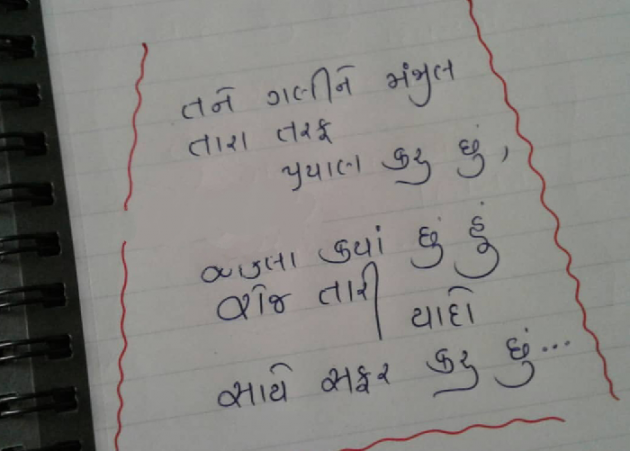 તને ગલીને મંજુલ
તારા તરફ
પ્રયાણ કરુ છું,
એકલા કયાં છું હું
રોજ તારી
યાદો
સાથે સફર કરુ છું...